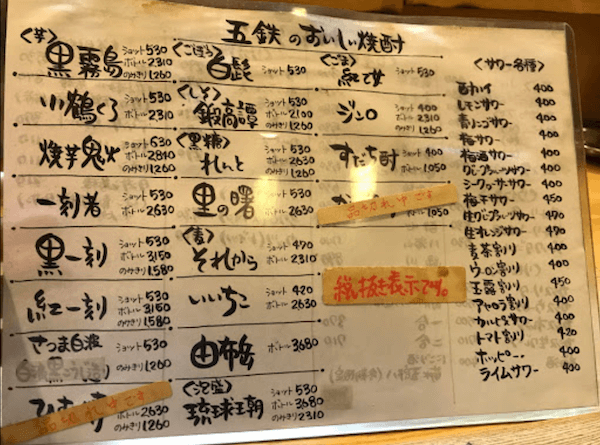 五鉄のおいしい焼酎
<芋>
黒霧島
ショット 530
ボトル 2310
のみきり 1260
小鶴くろ
ショット 530
ボトル 2310
のみきり 1260
焼芋鬼火
ショット 530
ボトル 2840
のみきり 1260
一刻者
ショット 530
ボトル 2630
黒一刻
ショット 530
ボトル 3150
のみきり 1580
紅一刻
ショット 530
ボトル 3150
のみきり 1580
さつま白波
ショット 530
のみきり 1260
品切れ中です
ボトル 2630
のみきり 1260
<ごぼう>
白髭
ショット 530
<しそ>
鍛高譚
ショット 530
ボトル 2100
のみきり 1260
<黒糖>
れんと
ショット 530
ボトル 2310
のみきり 1260
里の曙
ショット 530
ボトル 2630
<麦>
それから
ショット 470
ボトル 2310
いいちこ
ショット 420
ボトル 2630
由布岳
ボトル 3680
<泡盛>
琉球王朝
ショット 530
ボトル 3680
のみきり 2310
<ごま>
紅乙女
ショット 530
ジンロ
ショット 400
ボトル 2100
すだち酎
ショット 400
ボトル 1050
品切れ中です
1050
税抜き表示です。
<サワー各種>
酎ハイ 400
レモンサワー 400
青りんごサワー 400
梅サワー 400
梅酒サワー 400
シークヮーサーサワー 400
梅干サワー 450
生オレンジサワー 450
麦茶割り 400
ウーロン割り 400
玉露割り 450
アセロラ割り 400
カルピスサワー 400
トマト割り 420
ホッピー 400
ライムサワー 400